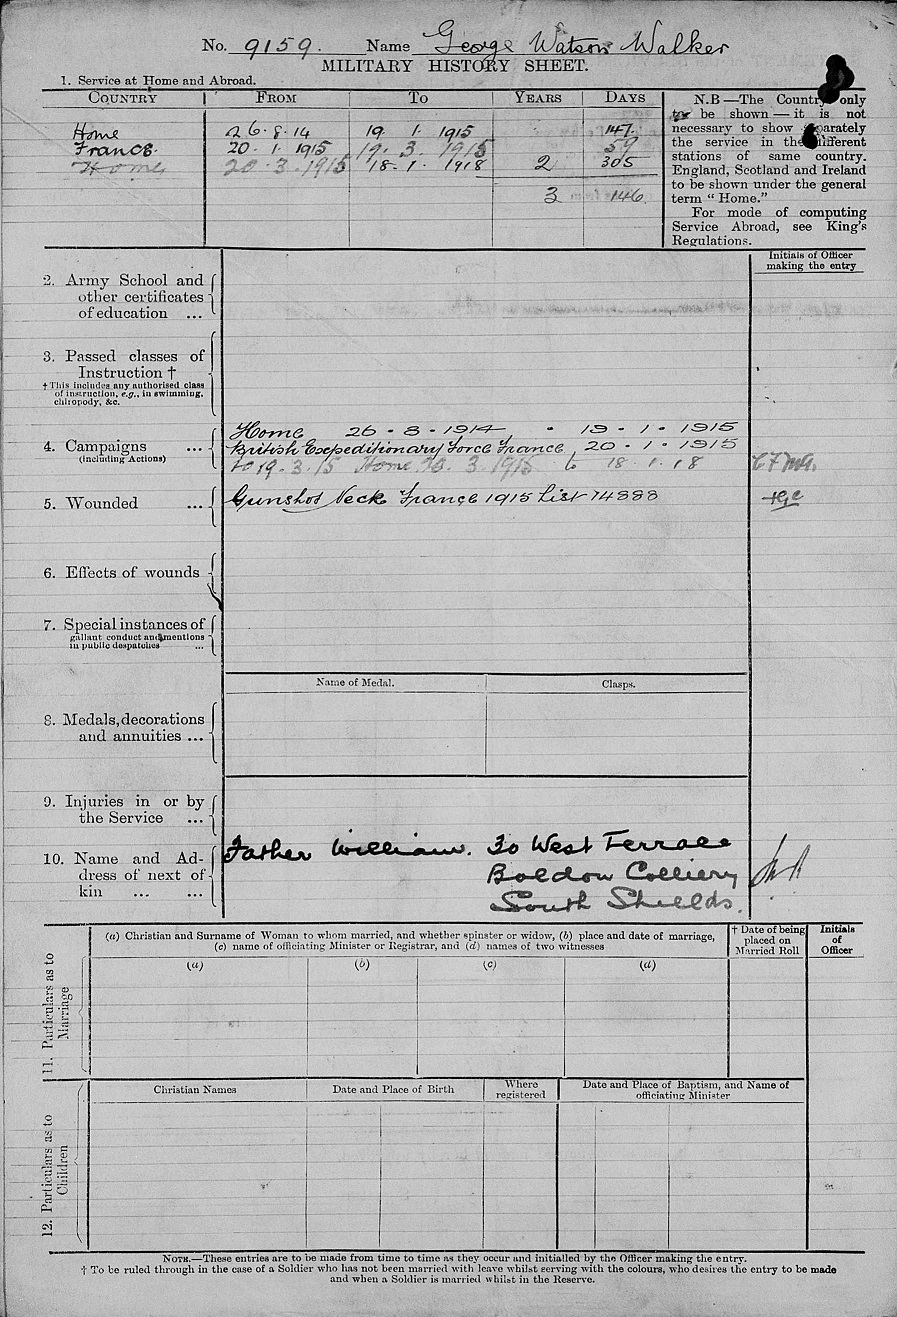 No. 9159. Name George Watson Walker
MILITARY HISTORY SHEET.
1. Service at Home and Abroad.
COUNTRY FROM TO YEARS DAYS
Home 26.8.14 19 1 1915 147.
France. 20.1.1915 19.3 1915 59
Home 20.3.1915 18.1.1918 2 305
3 146
N.B—The Country only
to be shown — it is not
necessary to show separately
the service in the different
stations of same country.
England, Scotland and Ireland
to be shown under the general
term “ Home.”
For mode of computing
Service Abroad, see King's
Regulations.
Initials of Officer
making the entry
2. Army School and
other certificates
of education ...
3. Passed classes of
Instruction †
† This includes any authorised class
of instruction, e.g., in swimming,
chiropody, &c.
4. Campaigns ...
(including Actions)
Home 26 - 8 - 1914 - 19 - 1 - 1915
British Expeditionary Force France 20 - 1 - 1915
to 19 - 3 - 15 Home 20. 3. 1915 to 18.1.18
5. Wounded ...
Gunshot Neck France 1915 List 14888
6. Effects of wounds
7. Special instances of
gallant conduct and mentions
in public despatches ...
Name of Medal. Clasps.
8. Medals, decorations
and annuities ...
9. Injuries in or by
the Service ...
10. Name and Ad-
dress of next of
kin ... ...
Father William. 30 West Terrace
Boldon Colliery
South Shields.
11. Particulars as to
Marriage
(a) Christian and Surname of Woman to whom married, and whether spinster or widow, (b) place and date of marriage,
(c) name of officiating Minister or Registrar, and (d) names of two witnesses
† Date of being
placed on
Married Roll
Initials
of
Officer
(a) (b) (c) (d)
12. Particulars as to
Children
Christian Names Date and Place of Birth
Where
registered
Date and Place of Baptism, and Name of
officiating Minister
NOTE.—These entries are to be made from time to time as they occur and initialled by the Officer making the entry.
† To be ruled through in the case of a Soldier who has not been married with leave whilst serving with the colours, who desires the entry to be made
and when a Soldier is married whilst in the Reserve.